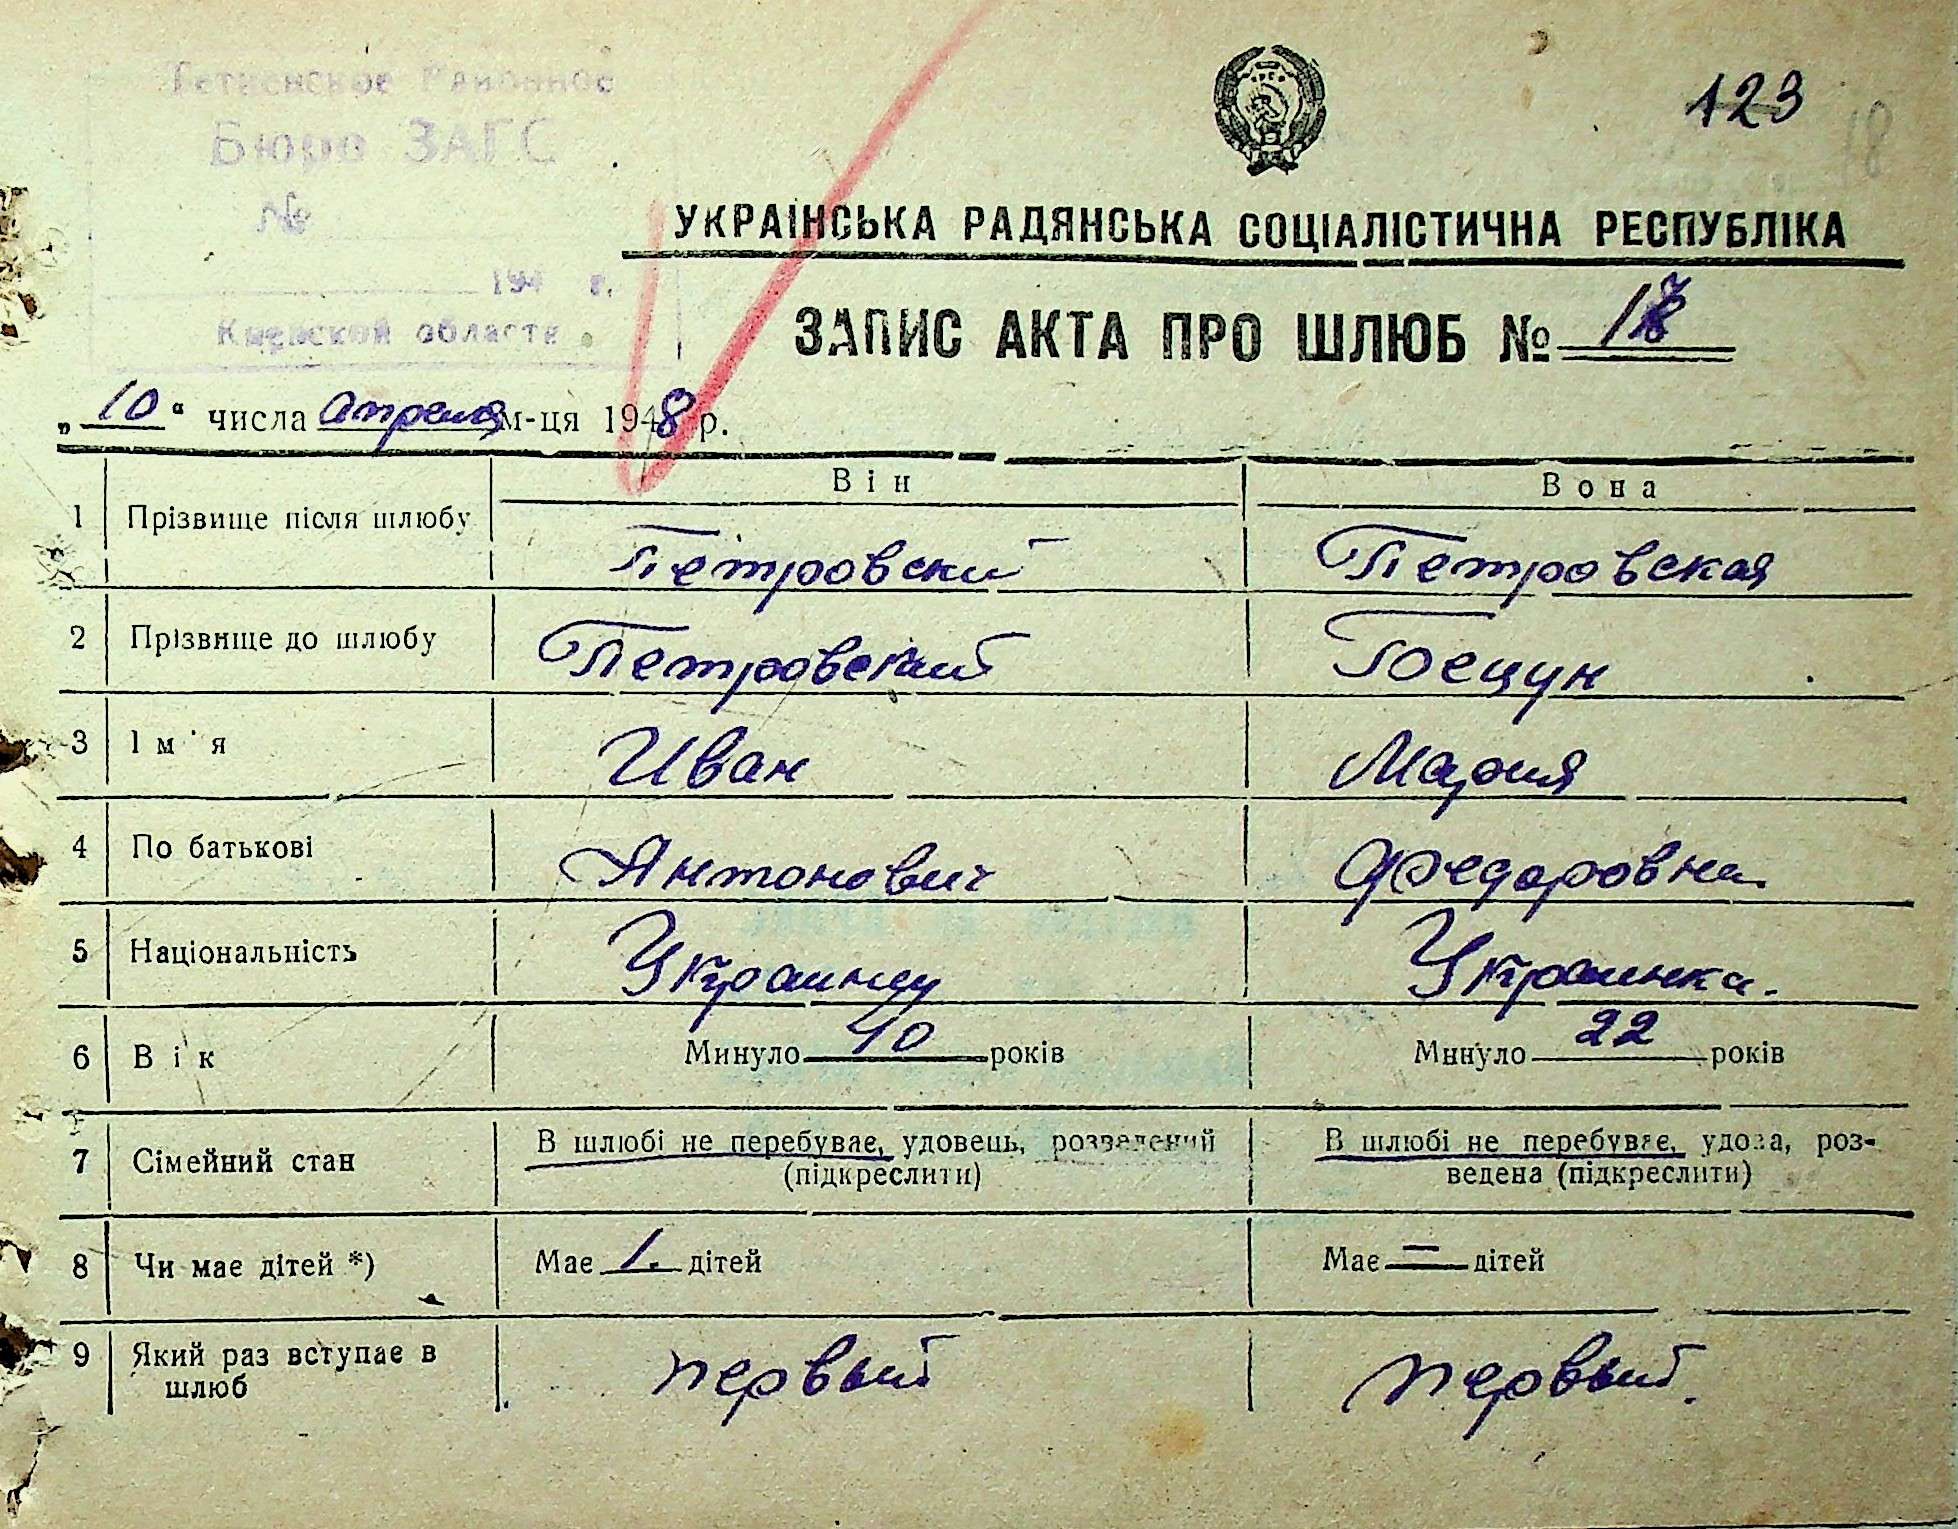 Районное
Бюро ЗАГС
№
194 г.
Киевской области
123
18
УКРАЇНСЬКА РАДЯНСЬКА СОЦІАЛІСТИЧНА РЕСПУБЛІКА
ЗАПИС АКТА ПРО ШЛЮБ №
„10“ числа апреля м-ця 1948 р.
Він Вона
1 Прізвище після шлюбу Петровски Петровская
2 Прізвище до шлюбу Петровский
3 Ім'я Иван Мария
4 По батькові Антонович Федоровна
5 Національність Украинец Украинка.
6 Вік Минуло років Минуло 22 років
7 Сімейний стан В шлюбі не перебуває, удовець, розведений (підкреслити) В шлюбі не перебуває, удова, роз-
ведена (підкреслити)
8 Чи має дітей *) Має 1. дітей Має — дітей
9 Який раз вступає в шлюб первый первый.